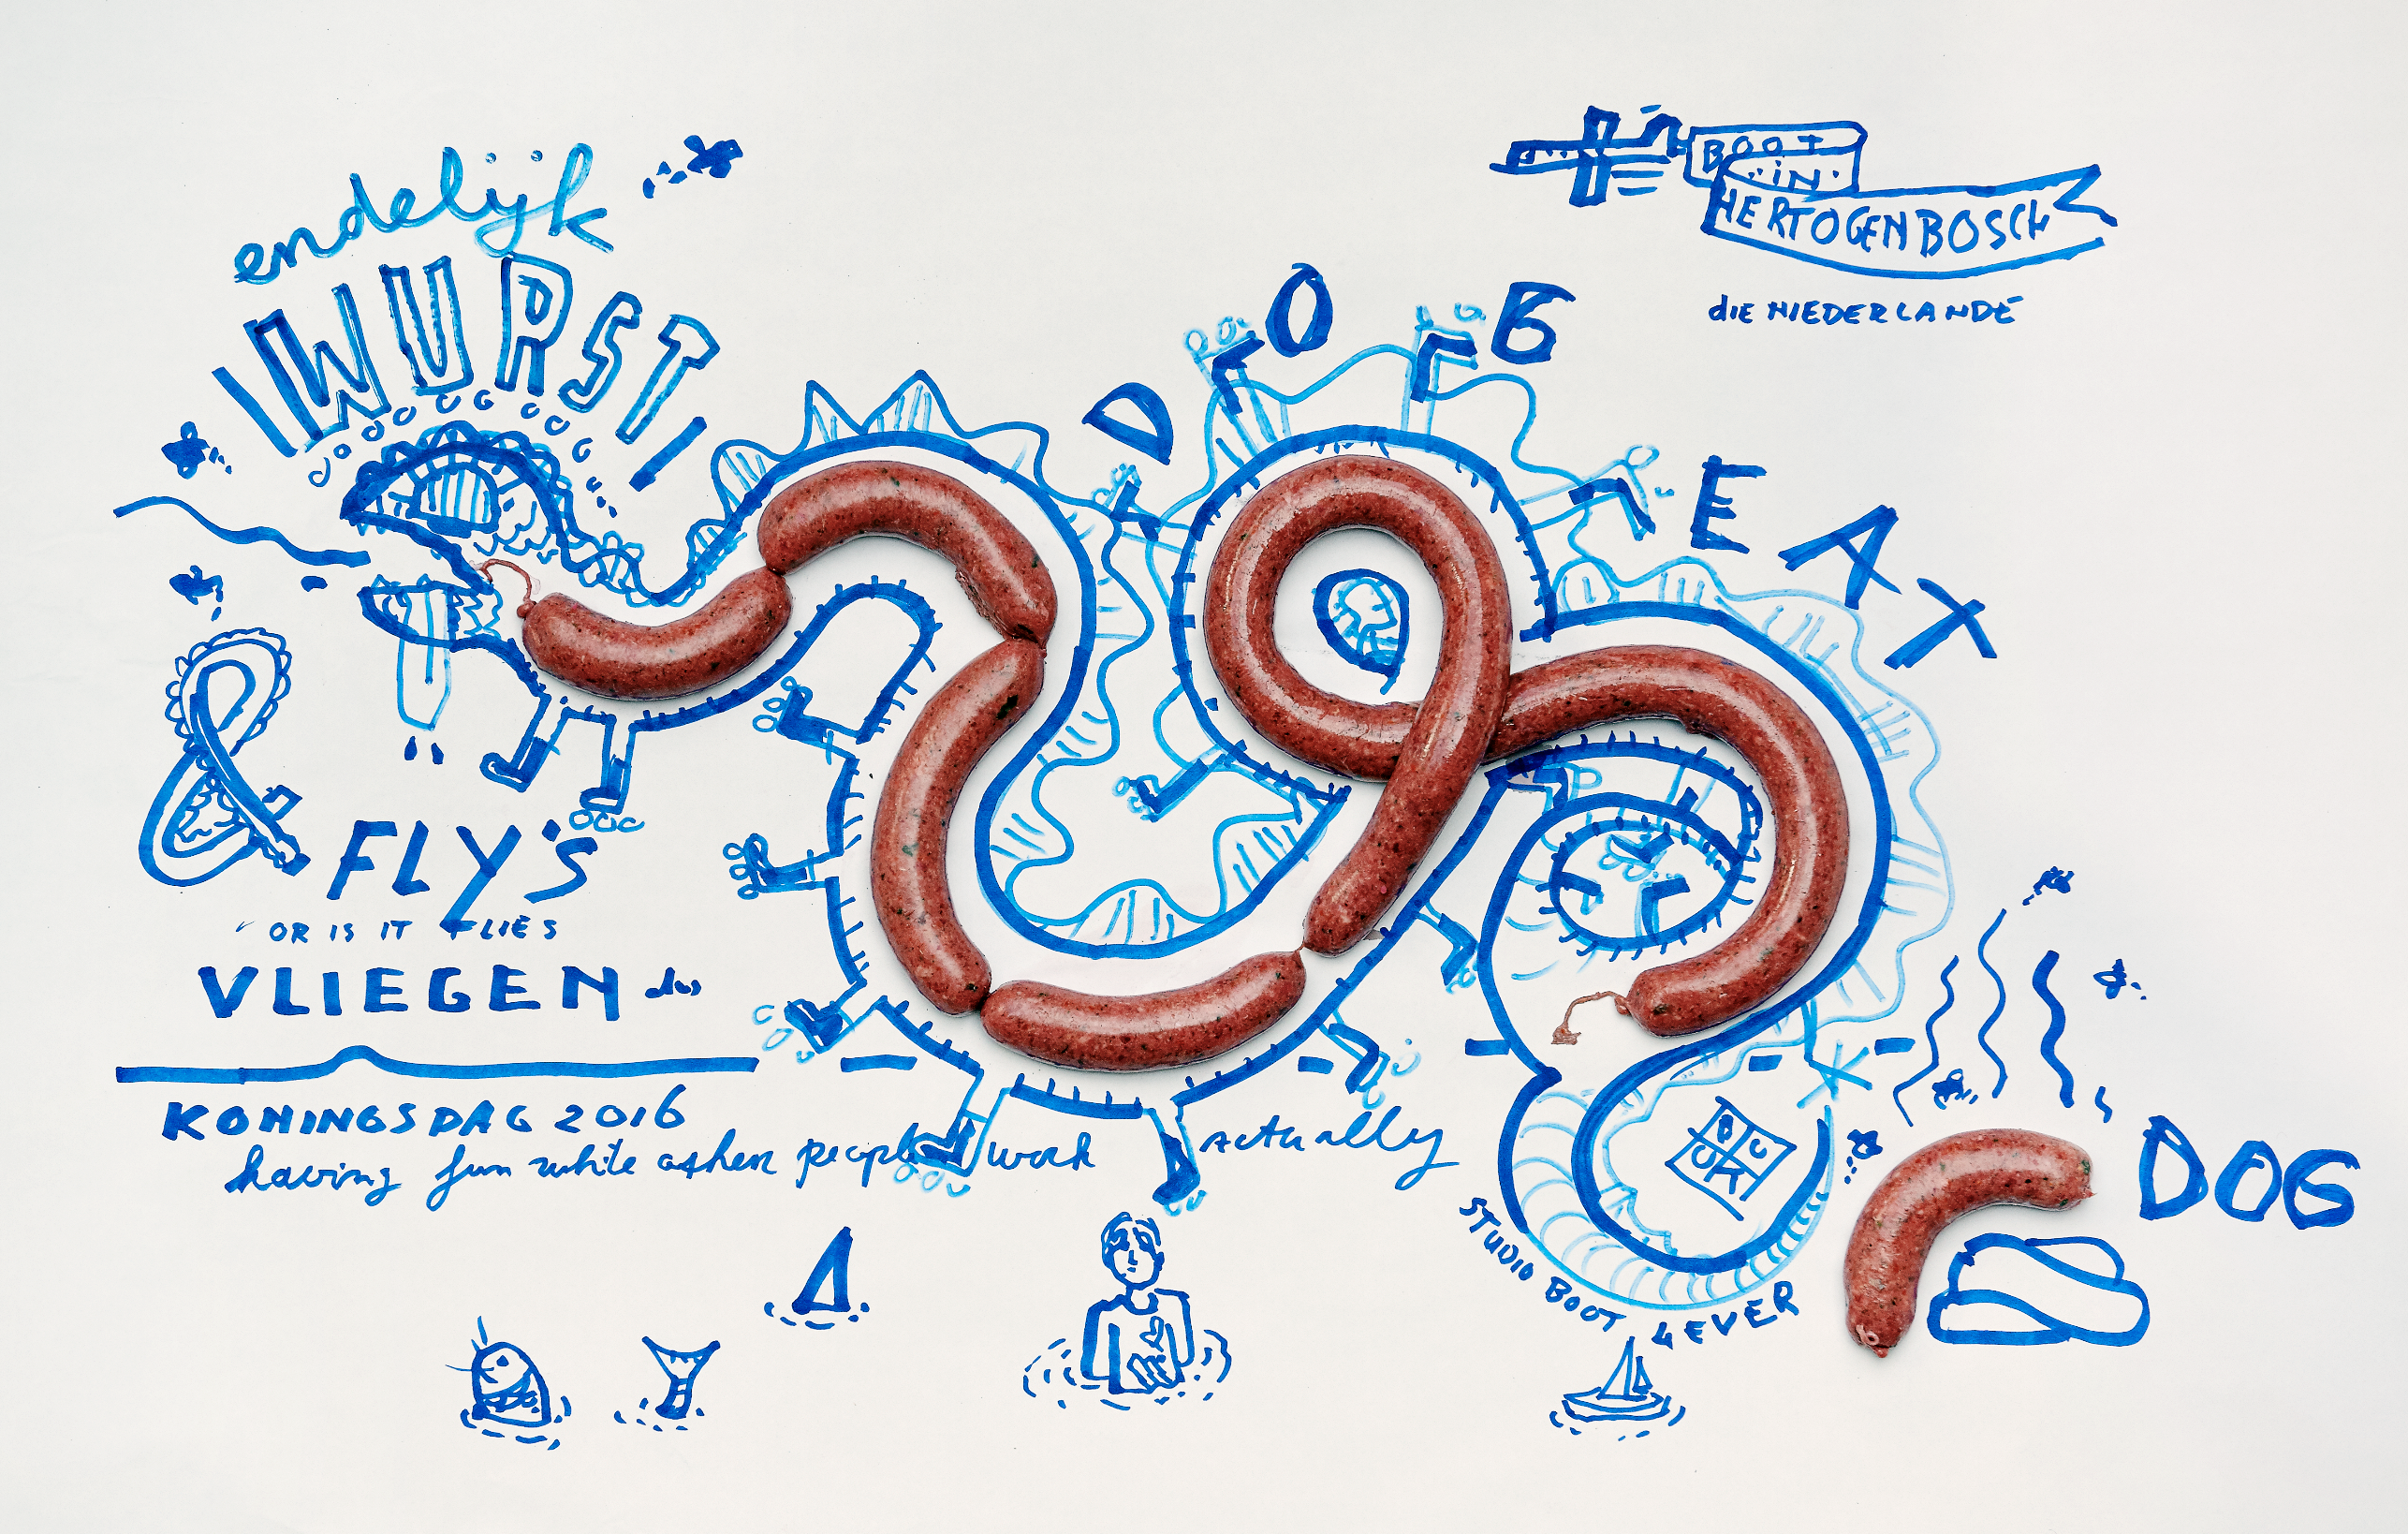 endelijk
WURST!
BOOT
IN
HERTOGENBOSCH
die NIEDERLANDE
DOG EAT
DOG
& FLY'S
OR IS IT FLIES
VLIEGEN dus
KONINGSDAG 2016
having fun while other people work actually
STUDIO BOOT 4EVER